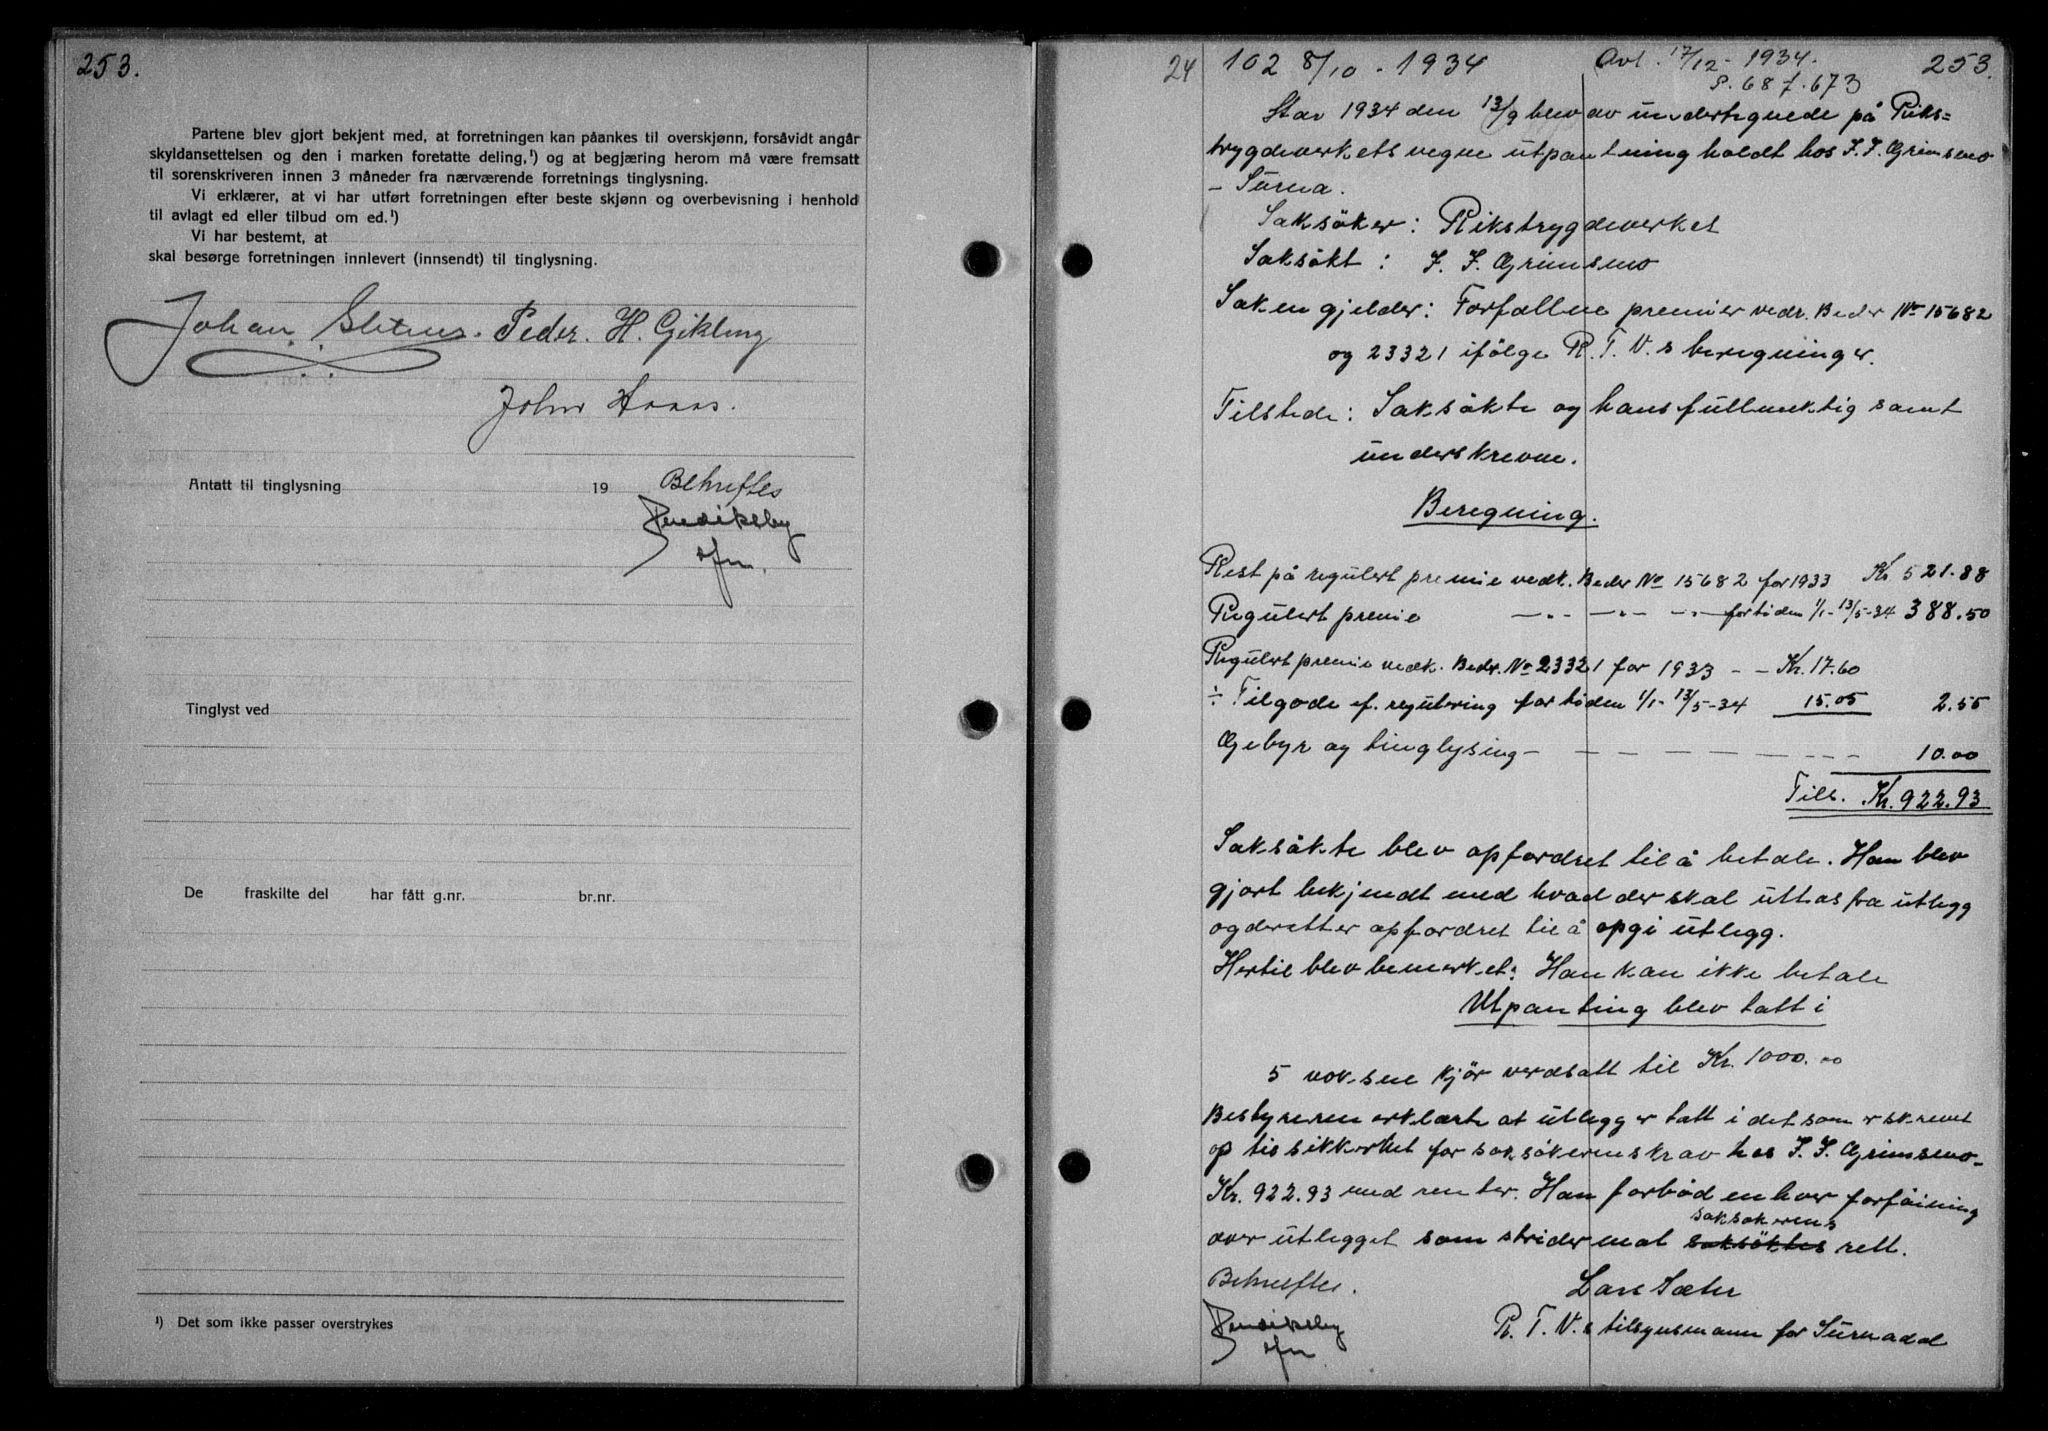 253.
Partene blev gjort bekjent med, at forretningen kan påankes til overskjønn, forsåvidt angår
skyldansettelsen og den i marken foretatte deling,¹) og at begjæring herom må være fremsatt
til sorenskriveren innen 3 måneder fra nærværende forretnings tinglysning.
Vi erklærer, at vi har utført forretningen efter beste skjønn og overbevisning i henhold
til avlagt ed eller tilbud om ed.¹)
Vi har bestemt, at
skal besørge forretningen innlevert (innsendt) til tinglysning.
Johan Peder. H. Gikling
John
Antatt til tinglysning 19 Bekreftes
Tinglyst ved
De fraskilte del har fått g.nr. br.nr.
¹) Det som ikke passer overstrykes
24 102 8/10 - 1934 Avl. 17/12 - 1934. 253.
P. 687.673
Aar 1934 den 13/9 blev av undertegnede på Riks=
trygdeverkets vegne utpantning holdt hos J. J. Grimsmo
- Surna.
Saksöker: Rikstrygdeverket
Saksökt : J. J. Grimsmo
Saken gjelder: Forfallne premier vedr. Bedr No 15682
og 23321 ifölge R. T. V.s beregninger.
Tilstede: Saksökte og hans fullmektig samt
underskrevne.
Beregning.
Rest på regulert premie vedk. Bedr No 15682 for 1933 Kr. 521.88
Regulert premie —„— —„— —„— for tiden 1/1-13/5-34 388.50
Regulert premie vedk. Bedr. No 23321 for 1933 - - Kr. 17.60
÷ Tilgode ef. regulering for tiden 1/1-13/5-34 15.05 2.55
Gebyr og tinglysing - - - - - - - 10.00
Tils. Kr. 922.93
Saksökte blev opfordret til å betale. Han blev
gjort bekjendt med hvad der skal uttas fra utlegg
og deretter opfordret til å opgi utlegg.
Hertil blev bemerket: Han kan ikke betale
Utpanting blev tatt i
5 voksne kjör verdsatt til Kr. 1000.00
Bestyreren erklærte at utlegg er tatt i det som er skrevet
op til sikkerhet for saksökerens krav hos J. J. Grimsmo-
Kr. 922.93 med renter. Han forböd enhver forföining
saksokerens
over utlegget som strider mot saksöktes rett.
Bekreftes. Lars Sæter
R. T. V.s tilsynsmann for Surnadal